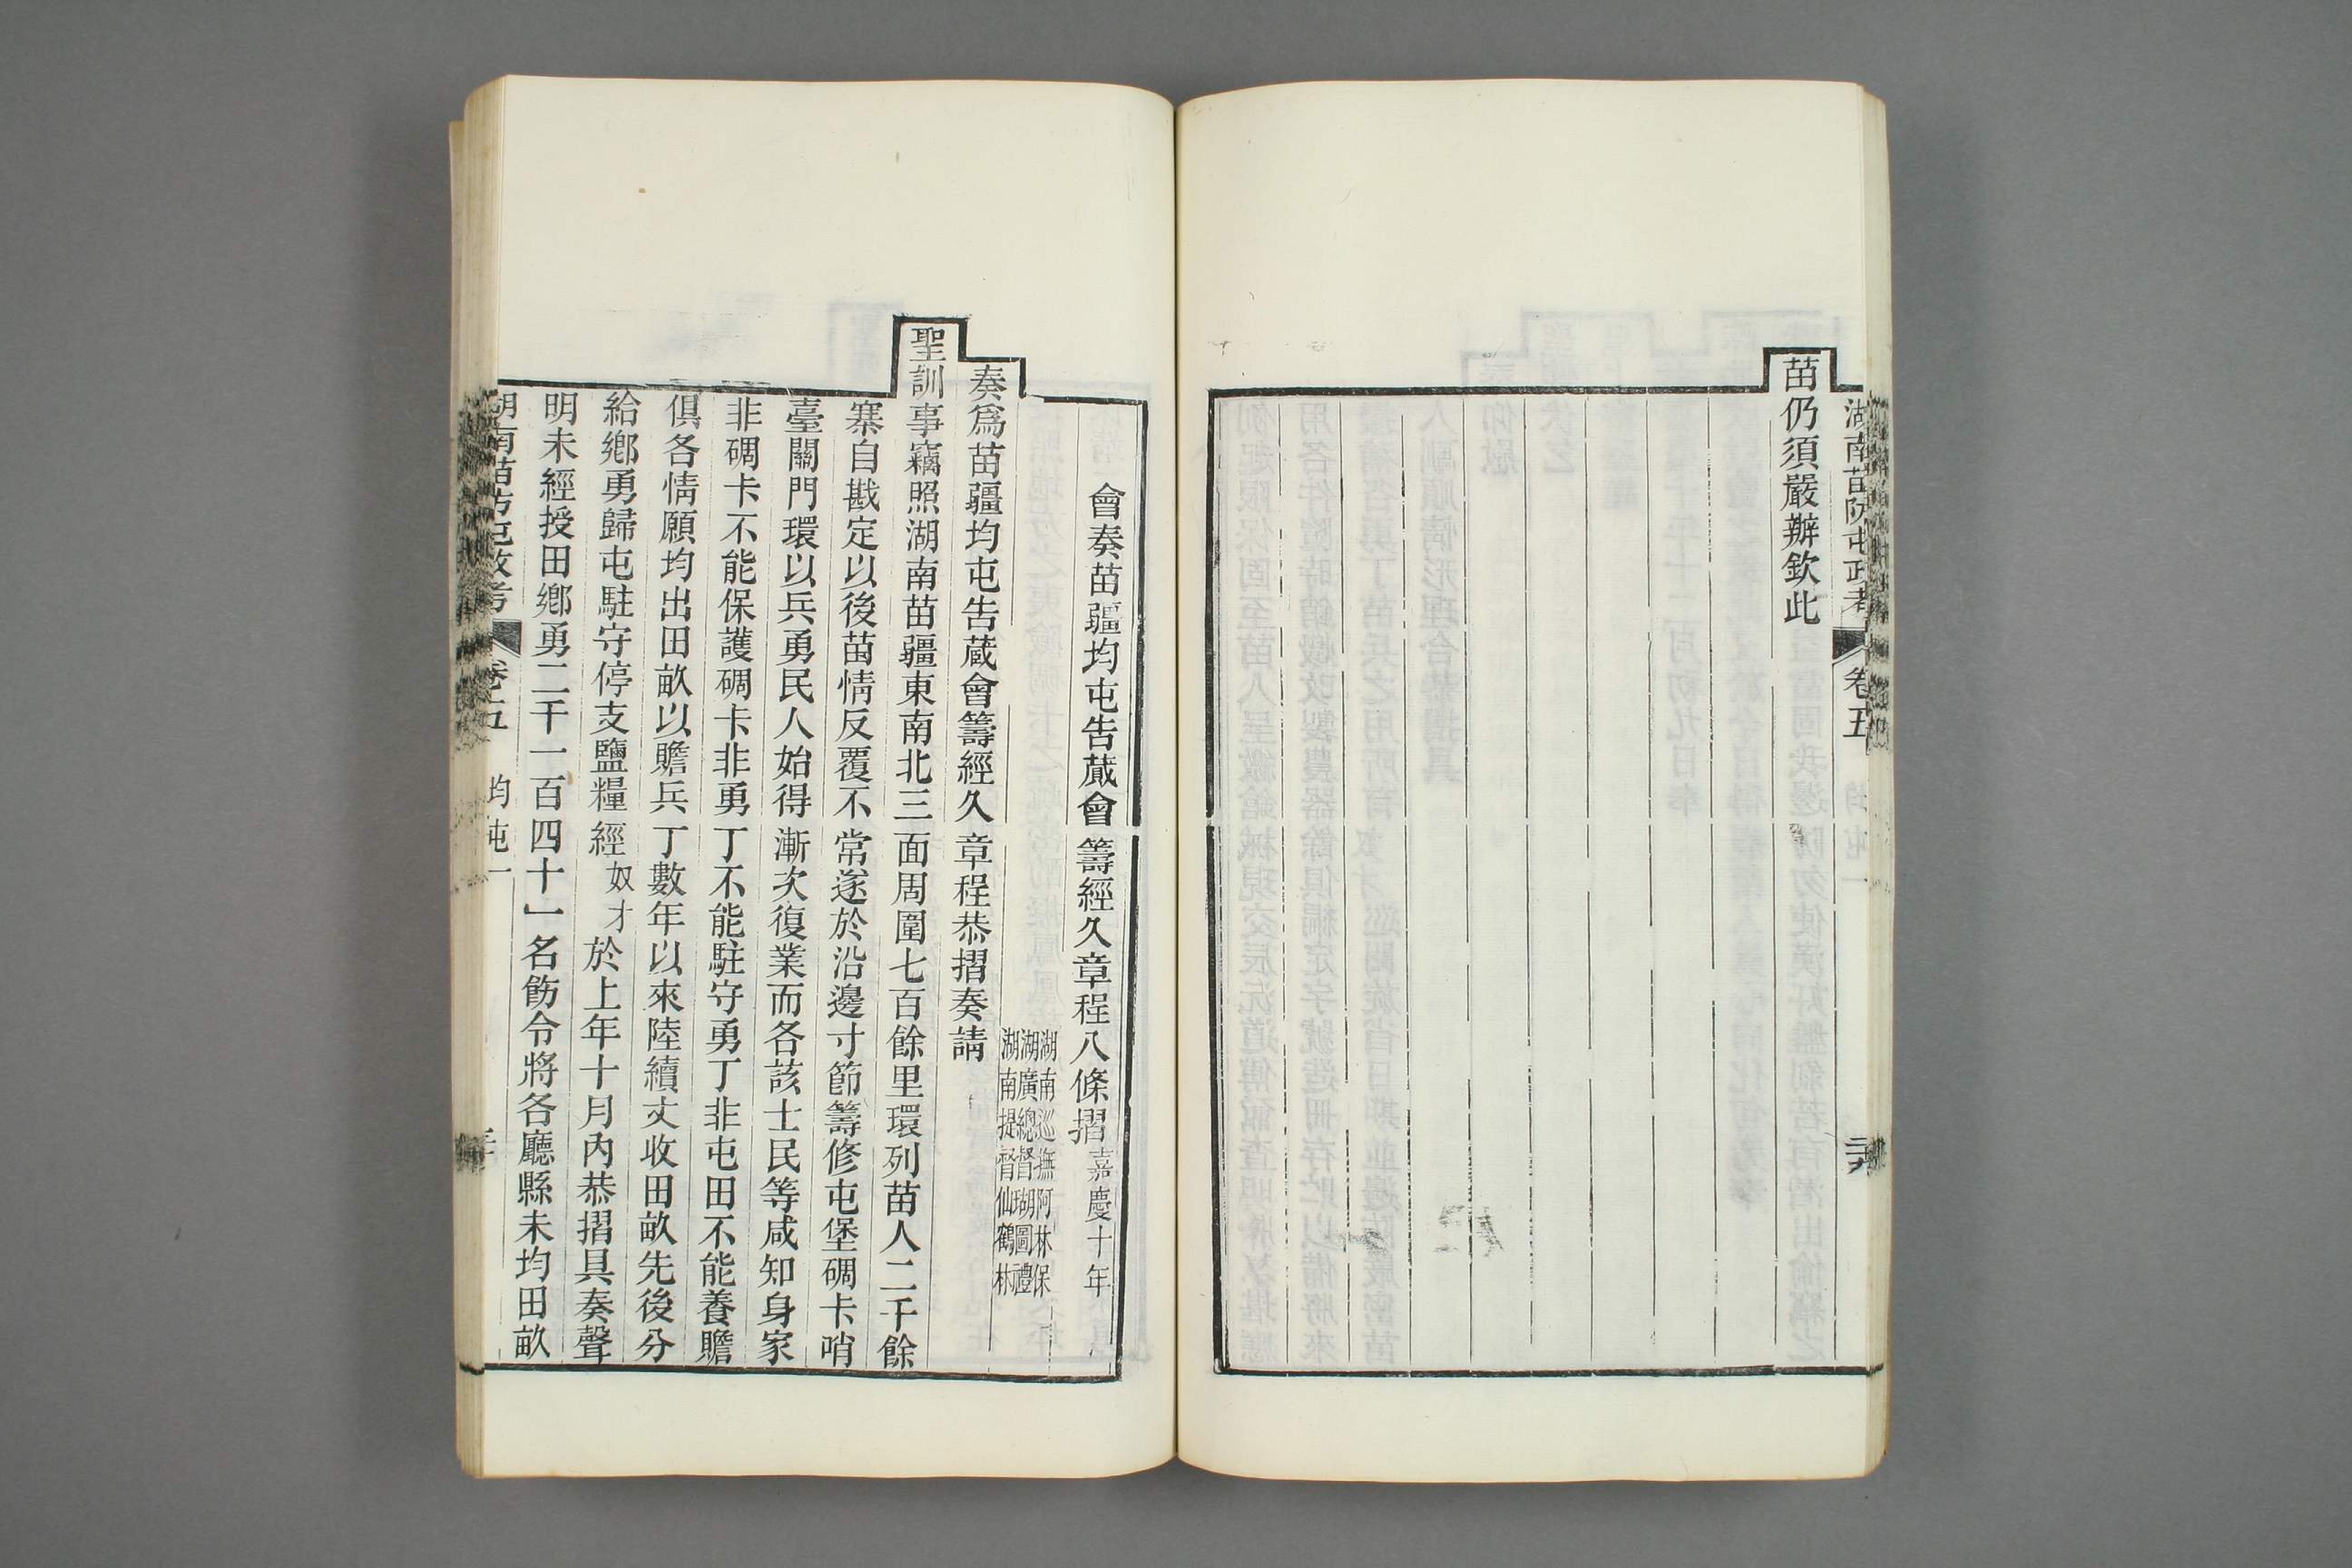 湖南苗防屯政考 卷五 均屯一 二十九
苗仍須嚴辦欽此
會奏苗疆均屯告蕆會籌經久章程八條摺嘉慶十年
湖南巡撫阿林保
湖廣總督瑚圖禮
湖南提督仙鶴林
奏爲苗疆均屯告蕆會籌經久章程恭摺奏請
聖訓事竊照湖南苗疆東南北三面周圍七百餘里環列苗人二千餘
寨自戡定以後苗情反覆不常遂於沿邊寸節籌修屯堡碉卡哨
臺關門環以兵勇民人始得漸次復業而各該土民等咸知身家
非碉卡不能保護碉卡非勇丁不能駐守勇丁非屯田不能養贍
俱各情願均出田畝以贍兵丁數年以來陸續丈收田畝先後分
給鄉勇歸屯駐守停支鹽糧經奴才於上年十月內恭摺具奏聲
明未經授田鄉勇二千一百四十一名飭令將各廳縣未均田畝
湖南苗防屯政考 卷五 均屯一